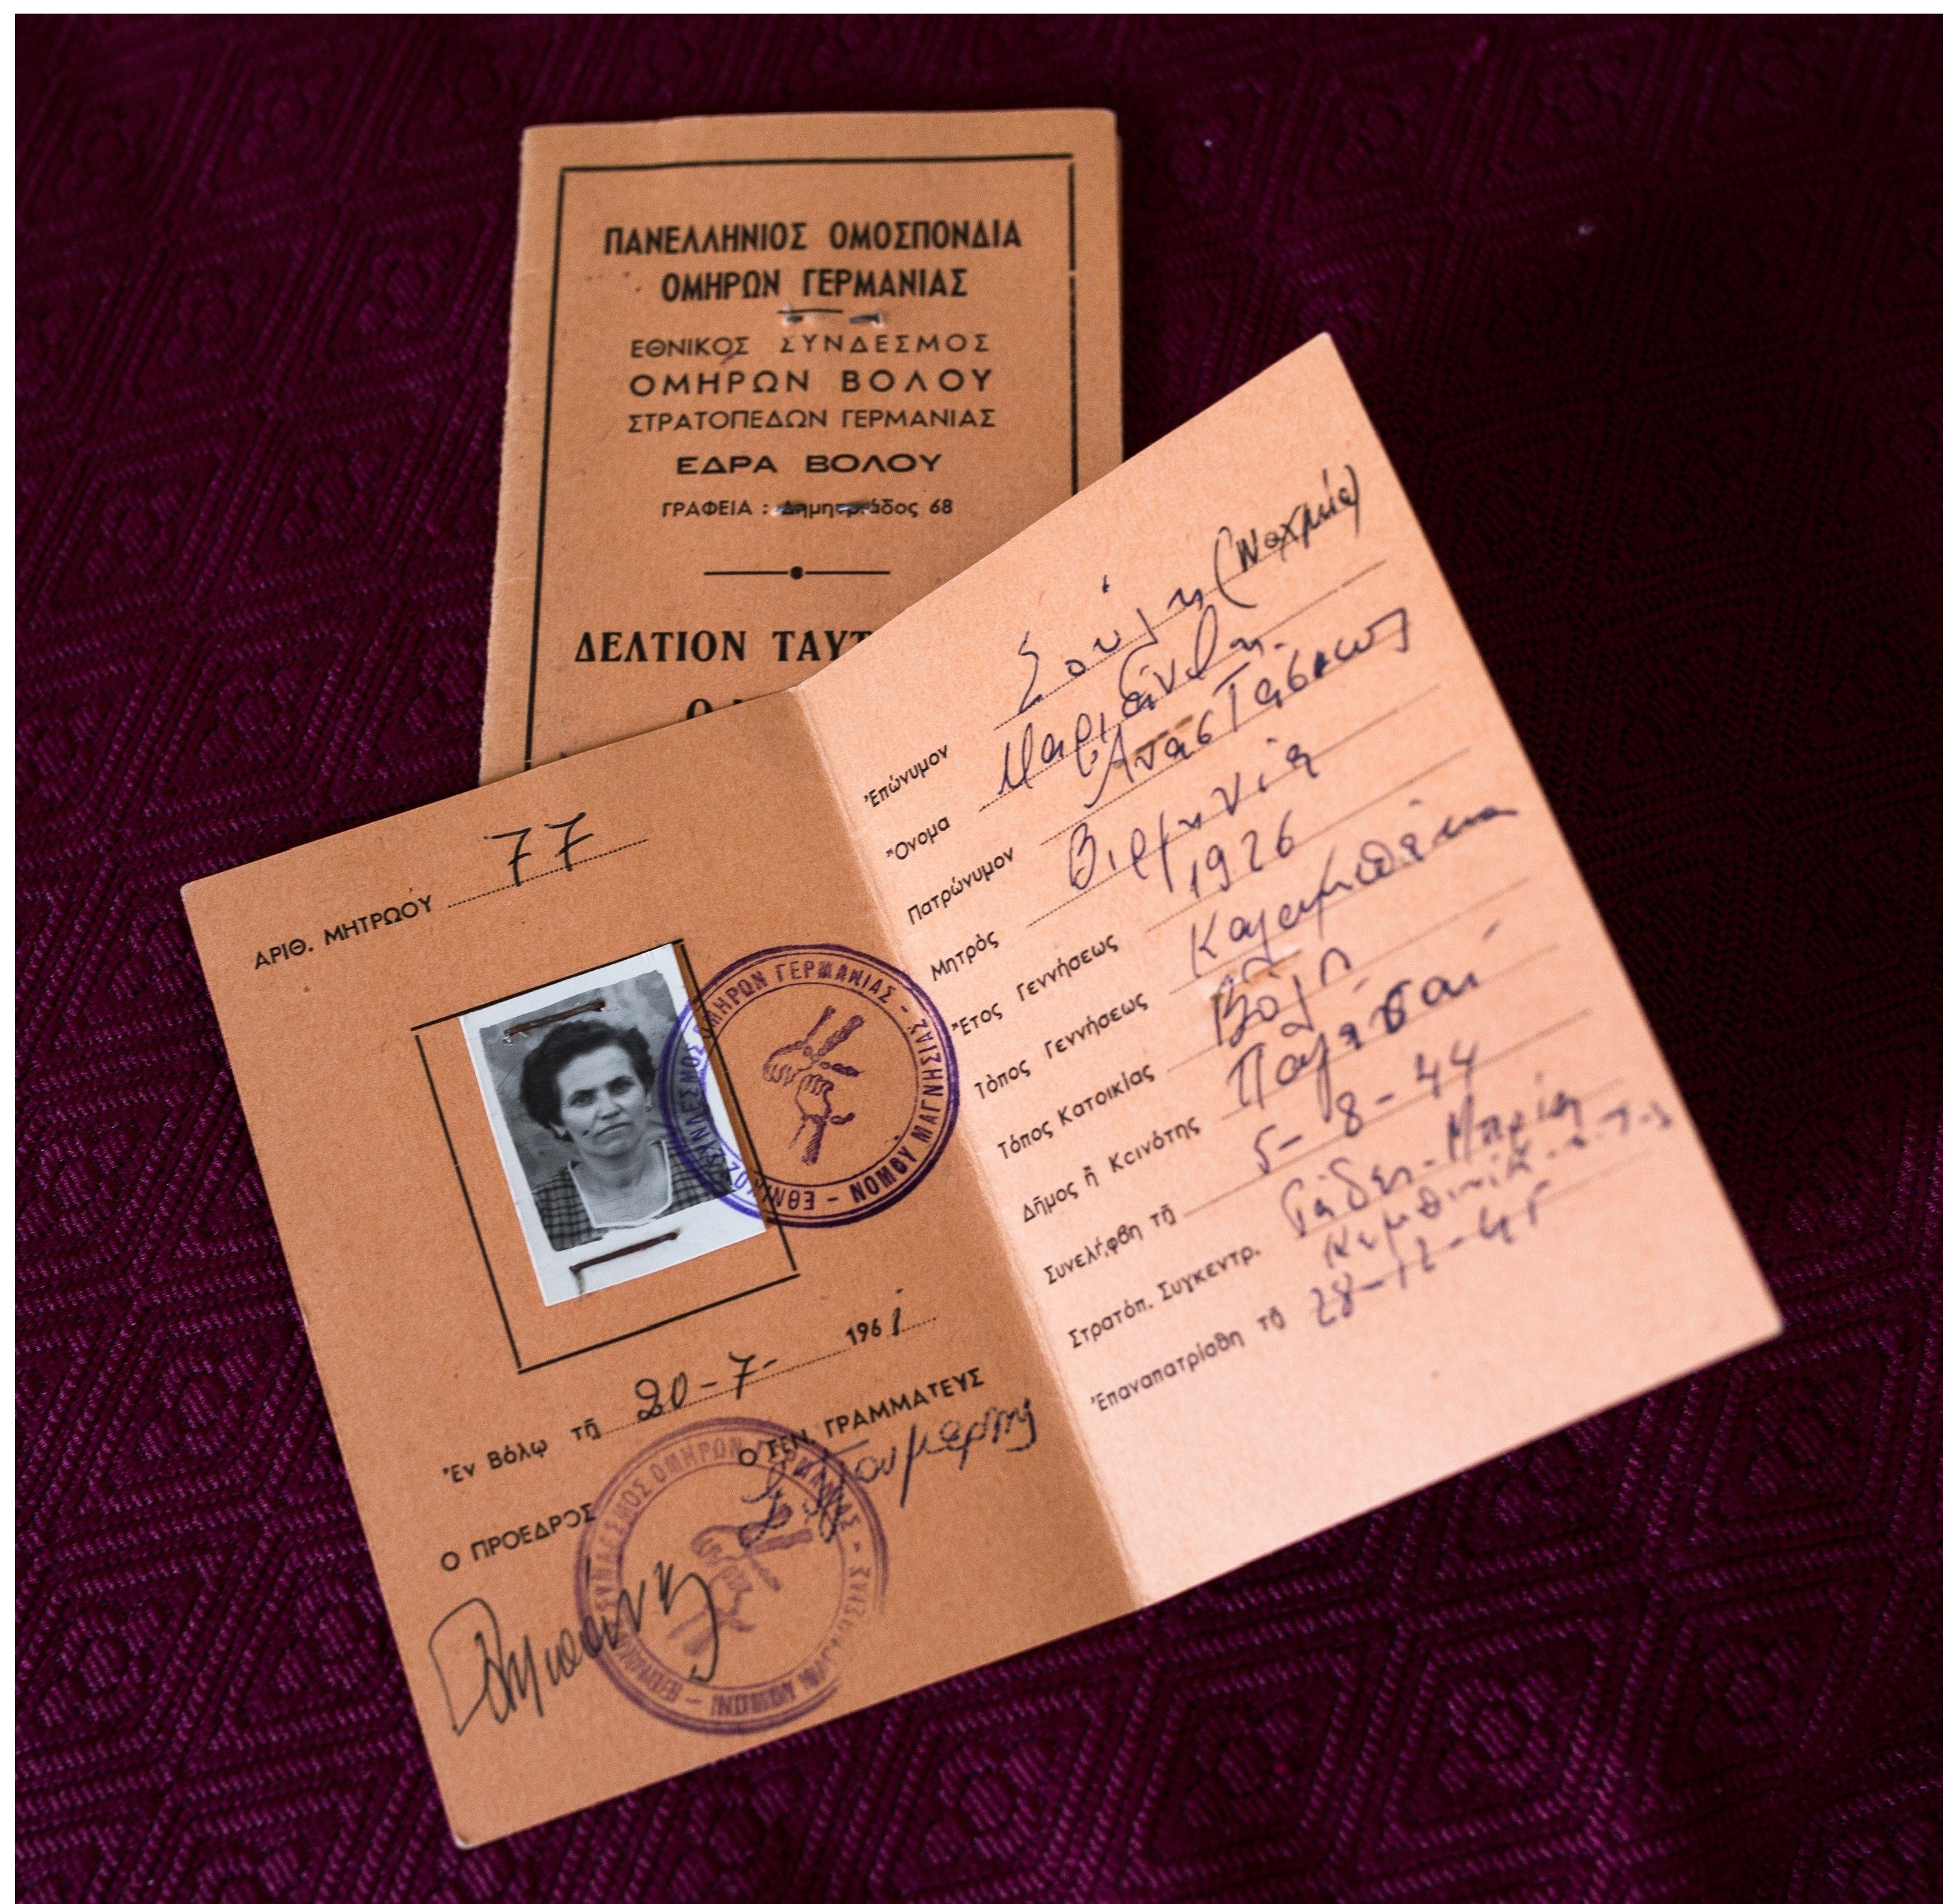 ΠΑΝΕΛΛΗΝΙΟΣ ΟΜΟΣΠΟΝΔΙΑ
ΟΜΗΡΩΝ ΓΕΡΜΑΝΙΑΣ
ΕΘΝΙΚΟΣ ΣΥΝΔΕΣΜΟΣ
ΟΜΗΡΩΝ ΒΟΛΟΥ
ΣΤΡΑΤΟΠΕΔΩΝ ΓΕΡΜΑΝΙΑΣ
ΕΔΡΑ ΒΟΛΟΥ
ΓΡΑΦΕΙΑ : Δημητριάδος 68
ΔΕΛΤΙΟΝ ΤΑΥΤ
ΑΡΙΘ. ΜΗΤΡΩΟΥ 77
ΕΘΝΙΚΟΣ ΣΥΝΔΕΣΜΟΣ ΟΜΗΡΩΝ ΓΕΡΜΑΝΙΑΣ - ΝΟΜΟΥ ΜΑΓΝΗΣΙΑΣ -
Ἐν Βόλῳ τῇ 20-7- 1961
Ο ΠΡΟΕΔΡΟΣ
Ο ΓΕΝ. ΓΡΑΜΜΑΤΕΥΣ
ΣΥΝΔΕΣΜΟΣ ΟΜΗΡΩΝ ΓΕΡΜΑΝΙΑΣ - ΝΟΜΟΥ ΜΑΓΝΗΣΙΑΣ -
Ἐπώνυμον Σούλη
Ὄνομα Μαριάνθη
Πατρώνυμον Αναστάσιος
Μητρὸς Βιργινία
Ἔτος Γεννήσεως 1926
Τόπος Γεννήσεως Καλαμπάκα
Τόπος Κατοικίας Βόλ
Δῆμος ἢ Κοινότης Παγασαί
Συνελήφθη τῇ 5-8-44
Στρατόπ. Συγκεντρ.
Ἐπαναπατρίσθη τῇ 28-12-45